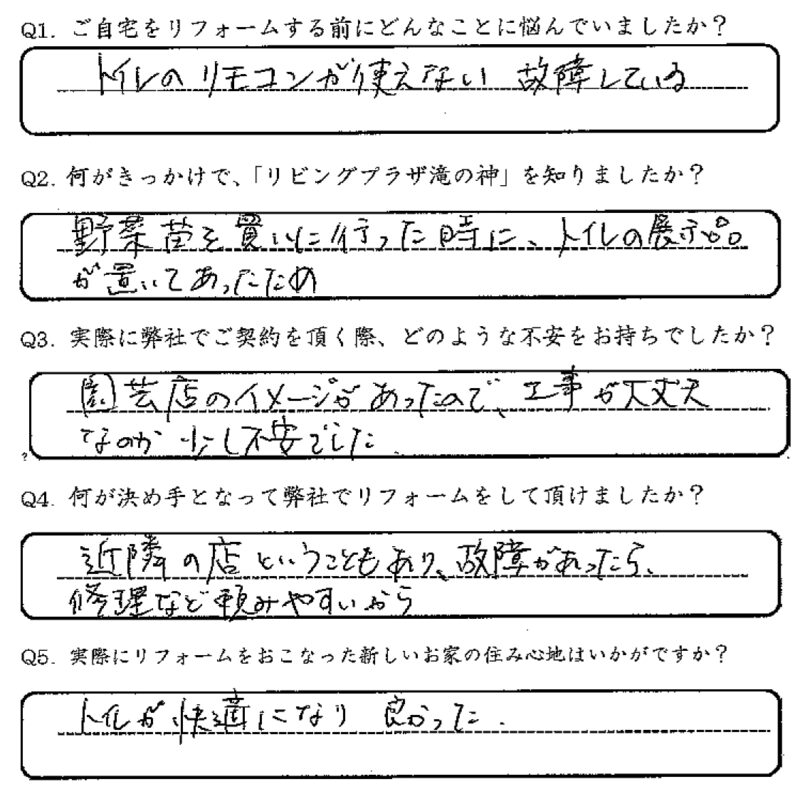 Q1. ご自宅をリフォームする前にどんなことに悩んでいましたか？
トイレのリモコンが使えない 故障している
Q2. 何がきっかけで、「リビングプラザ滝の神」を知りましたか？
野菜苗を買いに行った時に、トイレの展示品
が置いてあったため
Q3. 実際に弊社でご契約を頂く際、どのような不安をお持ちでしたか？
園芸店のイメージがあったので、工事が大丈夫
なのか 少し不安でした.
Q4. 何が決め手となって弊社でリフォームをして頂けましたか？
近隣の店ということもあり、故障があったら、
修理など頼みやすいから
Q5. 実際にリフォームをおこなった新しいお家の住み心地はいかがですか？
トイレが快適になり 良かった.